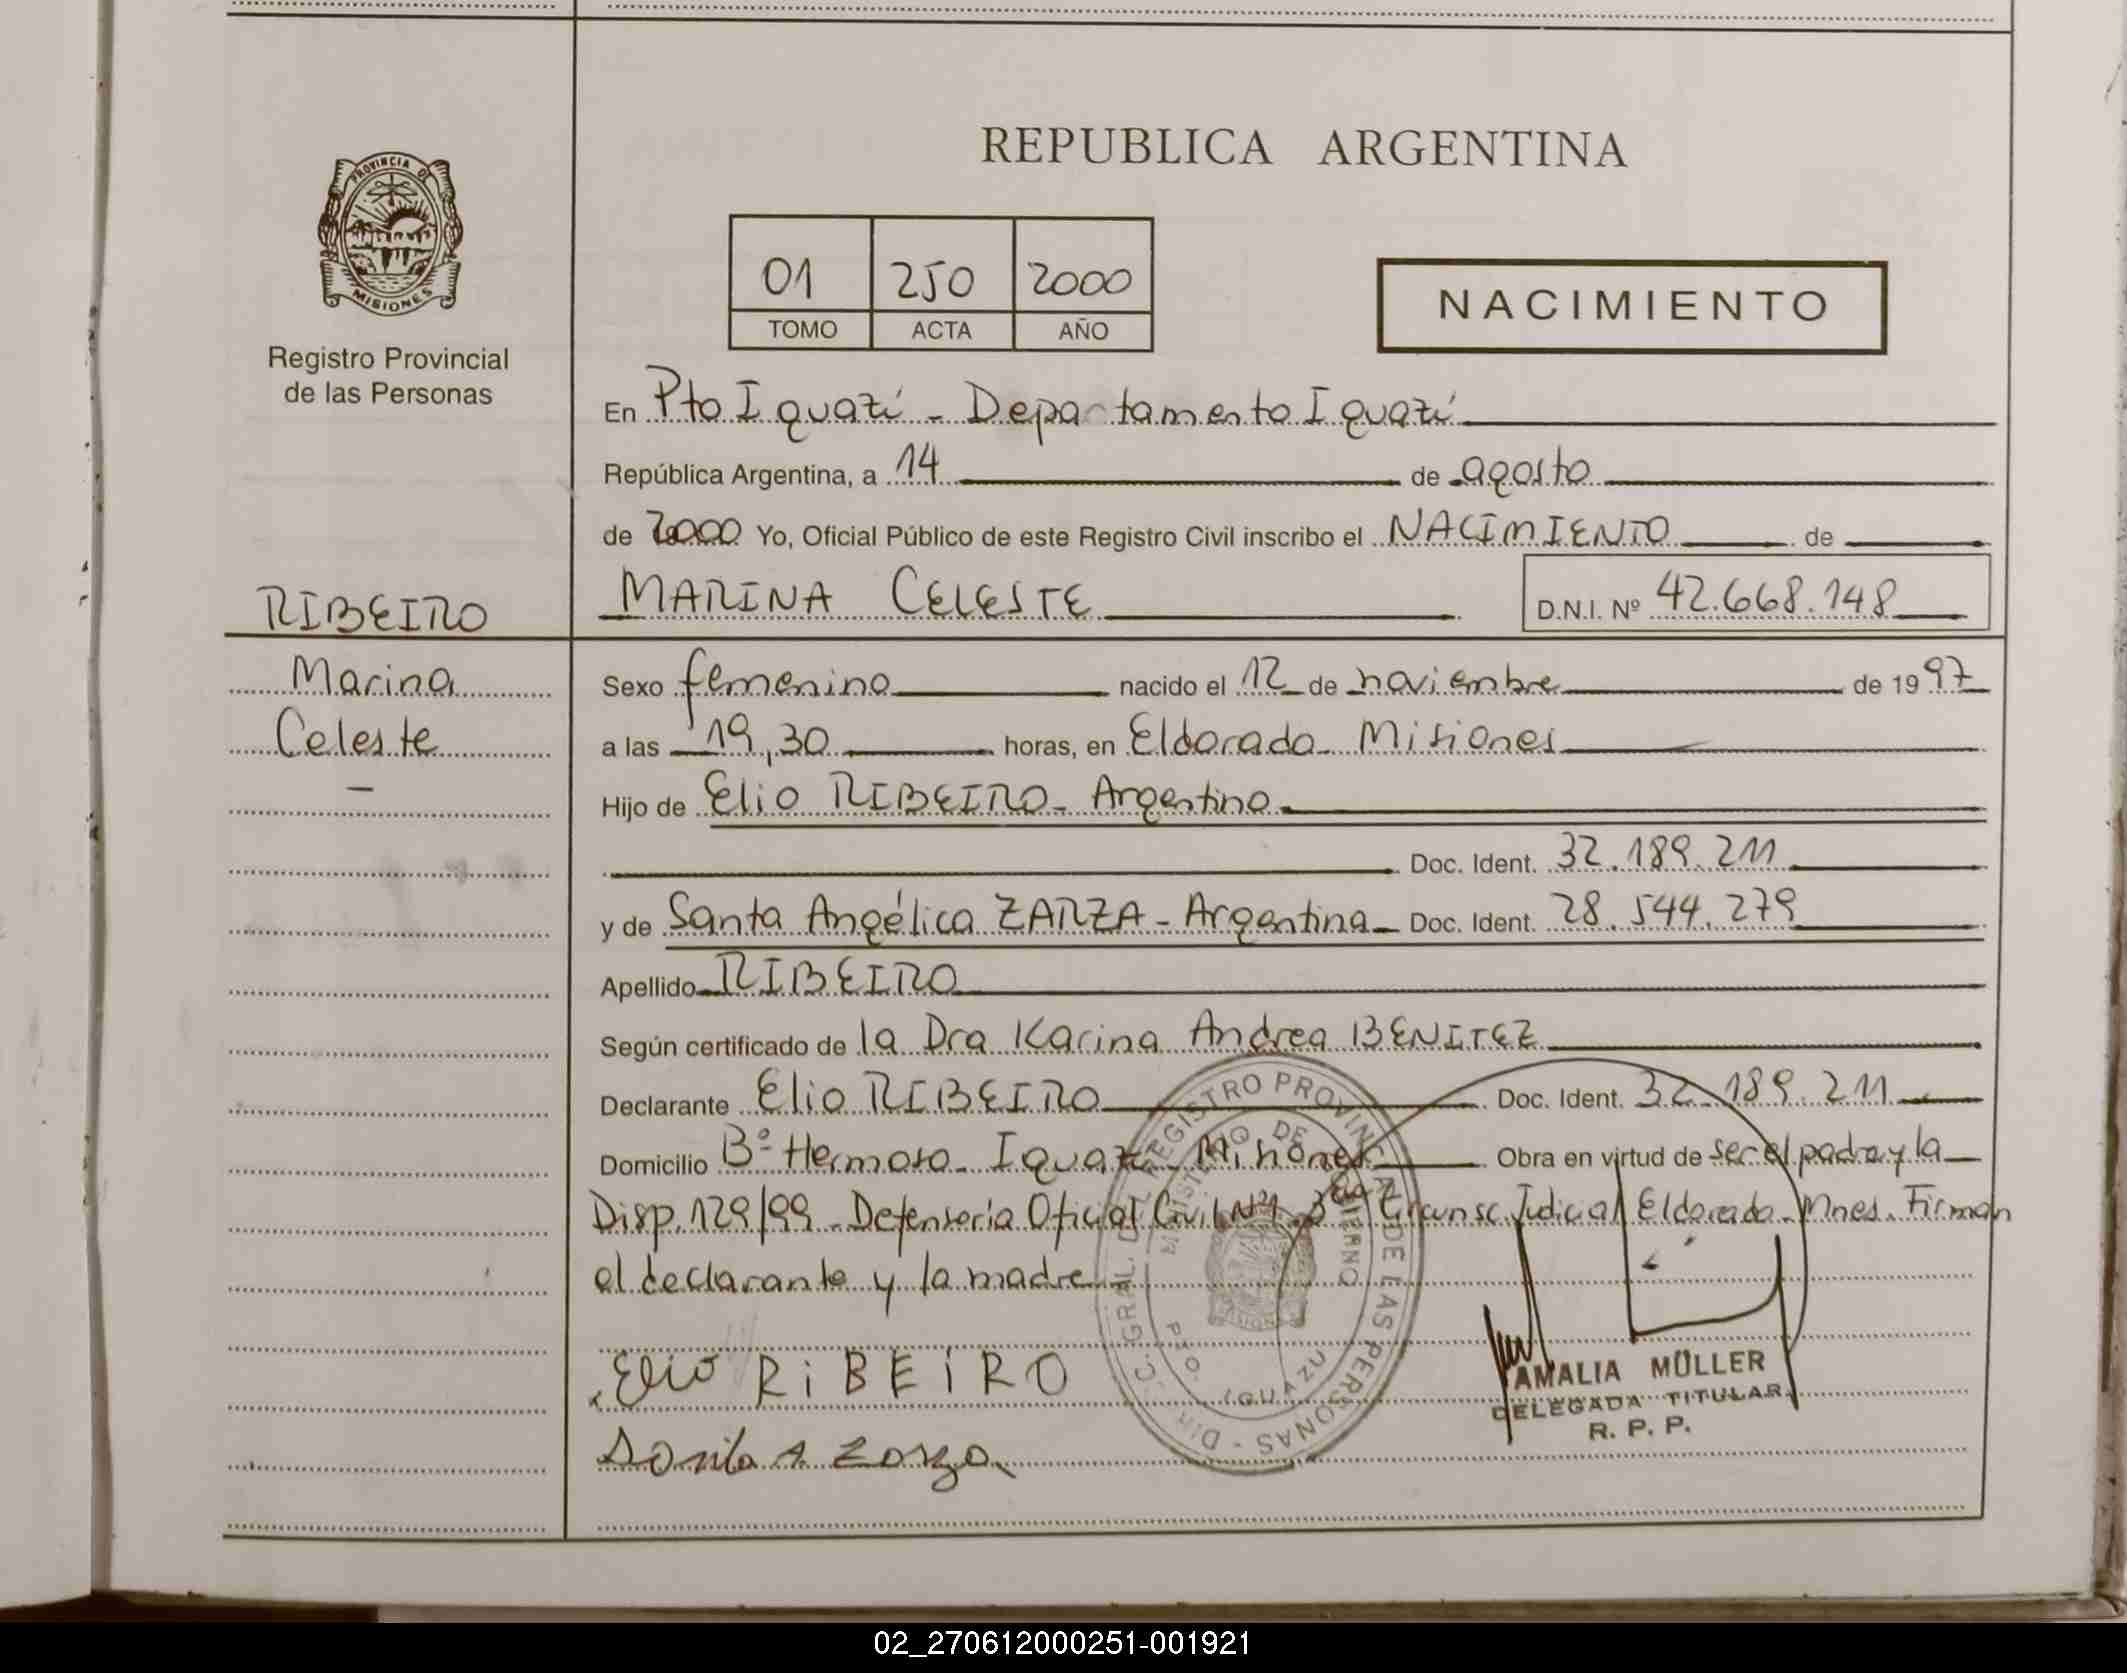 REPUBLICA ARGENTINA
PROVINCIA DE
MISIONES
Registro Provincial
de las Personas
01 250 2000
TOMO ACTA AÑO
NACIMIENTO
En Pto Iguazú - Departamento Iguazú
República Argentina, a 14 de agosto
de 2000 Yo, Oficial Público de este Registro Civil inscribo el NACIMIENTO de
MARINA CELESTE D.N.I. Nº 42.668.148
RIBEIRO
Marina
Celeste
Sexo femenino nacido el 12 de noviembre de 1997
a las 19,30 horas, en Eldorado Misiones
Hijo de Elio RIBEIRO - Argentino
Doc. Ident. 32.189.211
y de Santa Angélica ZARZA - Argentina - Doc. Ident. 28.544.279
Apellido RIBEIRO
Según certificado de la Dra Karina Andrea BENITEZ
Declarante Elio RIBEIRO Doc. Ident. 32.189.211
Domicilio Bº Hermoso - Iguazú - Misiones Obra en virtud de ser el padre y la
Disp. 129/99 - Defensoría Oficial Civil Nº1 3era Circunsc. Judicial Eldorado - Mnes. Firman
el declarante y la madre
Elio RiBEiRO
Santa A Zarza
DIR. GRAL. DEL REGISTRO PROVINCIAL DE LAS PERSONAS
MINISTERIO DE GOBIERNO
PTO. IGUAZU
AMALIA MÜLLER
DELEGADA TITULAR
R. P. P.
02_270612000251-001921